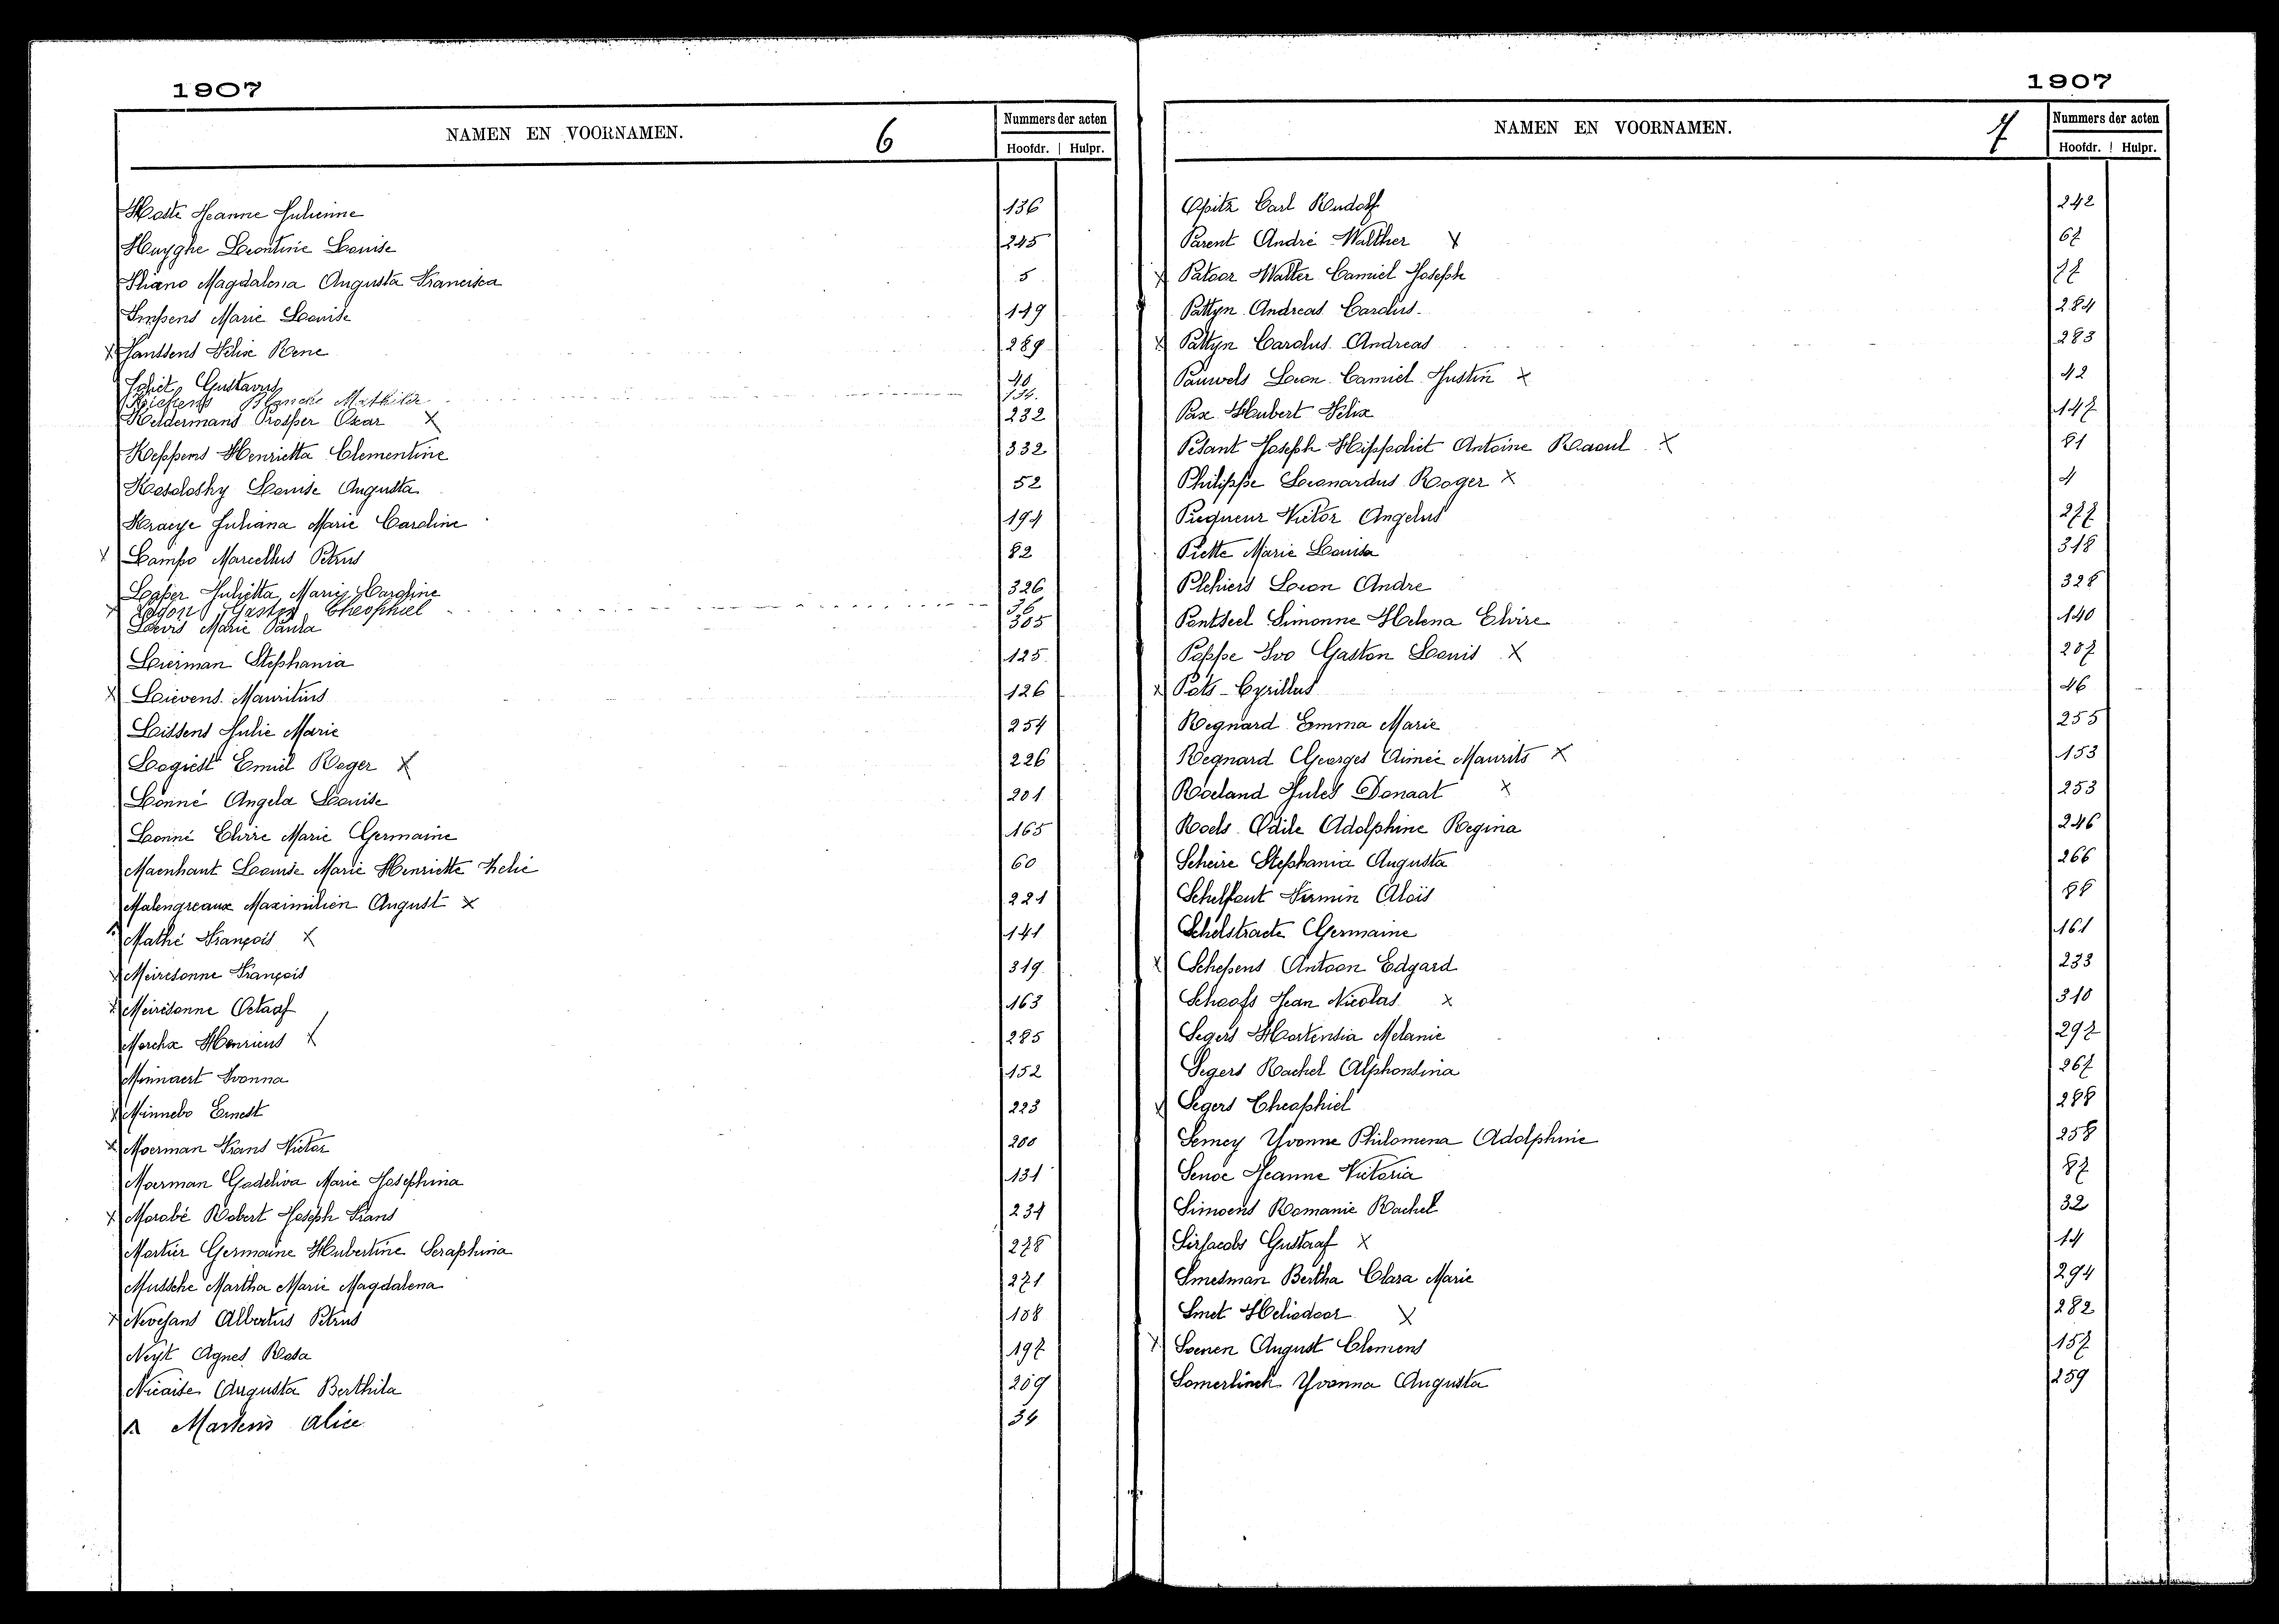 1907
NAMEN EN VOORNAMEN. 6 Nummers der acten
Hoofdr. Hulpr.
Hoste Jeanne Julienne 136
Huyghe Leontine Louise 245
Iliano Magdalena Augusta Francisca 5
Impens Marie Louise 149
X Janssens Felix Rene 289
Joliet Gustavus 40
Kiekens Blanche Mathilde 134.
Keldermans Prosper Oscar X 232
Keppens Henrietta Clementine 332
Kosolosky Louise Augusta 52
Kraeye Juliana Marie Caroline 194
X Lampo Marcellus Petrus 82
Laper Julietta Marie Caroline 326
X Gaston Theophiel 36
Marie Paula 305
Lierman Stephania 125
X Lievens Mauritius 126
Lissens Julie Marie 254
Logiest Emiel Roger X 226
Lonné Angela Louise 201
Lonné Elvire Marie Germaine 165
Maenhaut Louise Marie Henriette Zelie 60
Malengreaux Maximilien August X 221
Mathé François X 141
X Meiresonne François 319
X Meiresonne Octaaf 163
Merckx Henricus X 285
Minnaert Ivonna 152
X Minnebo Ernest 223
X Moerman Frans Victor 200
Moerman Godeliva Marie Josephina 131
X Morabé Robert Joseph Frans 234
Mortier Germaine Hubertine Seraphina 278
Mussche Martha Marie Magdalena 271
X Nevejans Albertus Petrus 108
Neyt Agnes Rosa 197
Nicaise Augusta Berthila 209
Martens Alice 34
1907
NAMEN EN VOORNAMEN. 7 Nummers der acten
Hoofdr. Hulpr.
Opitz Carl Rudolf 242
Parent André Walther X 67
X Patoor Walter Camiel Joseph 77
Pattyn Andreas Carolus 284
X Pattyn Carolus Andreas 283
Pauwels Leon Camiel Justin X 42
Pax Hubert Felix 147
Pesant Joseph Hippoliet Antoine Raoul X 81
Philippe Leonardus Roger X 4
Piequeur Victor Angelus 277
Piette Marie Louisa 318
Plehiers Leon Andre 328
Pontseel Simonne Helena Elvire 140
Poppe Ivo Gaston Louis X 207
X Pots Cyrillus 46
Regnard Emma Marie 255
Regnard Georges Aimée Maurits X 153
Roeland Jules Donaat X 253
Roels Odile Adolphine Regina 246
Scheire Stephania Augusta 266
Schelfaut Firmin Aloïs 88
Schelstraete Germaine 161
X Schepens Antoon Edgard 233
Schoofs Jean Nicolas X 310
Segers Hortensia Melanie 297
Segers Rachel Alphonsina 267
X Segers Theophiel 288
Semey Yvonne Philomena Adolphine 258
Senoe Jeanne Victoria 87
Simoens Romanie Rachel 32
Sirjacobs Gustaaf X 14
Smesman Bertha Clara Marie 294
Smet Heliodoor X 282
X Soenen August Clemens 157
Somerlinck Yvonna Augusta 259